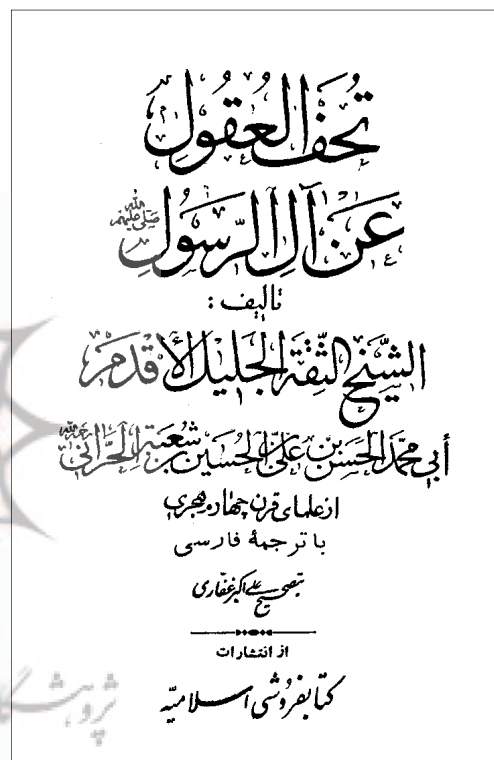 تُحَفُ الْعُقُولِ
عَنْ آلِ الرَّسُولِ صلى الله عليهم
تالیف :
الشَّيْخِ الثِّقَةِ الْجَلِيلِ الْأَقْدَمِ
أَبِي مُحَمَّدٍ الْحَسَنِ بْنِ عَلِيِّ بْنِ الْحُسَيْنِ بْنِ شُعْبَةَ الْحَرَّانِيِّ رحمه الله
از علمای قرن چهارم هجری
با ترجمهٔ فارسی
بتصحیح علی اکبر غفاری
از انتشارات
کتابفروشی اسلامیّه